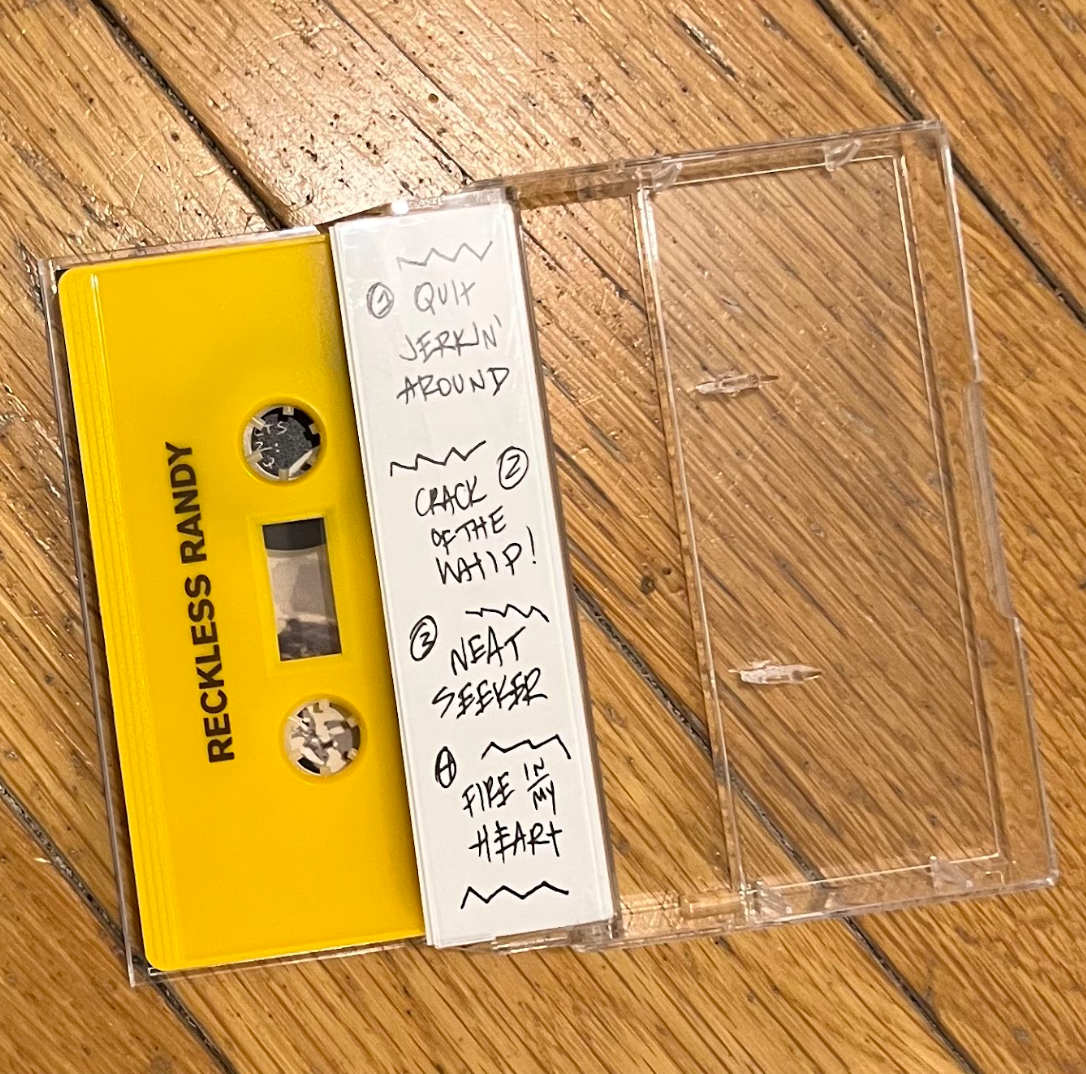 RECKLESS RANDY
① QUIT
JERKIN'
AROUND
CRACK ②
OF THE
WHIP!
③ NEAT
SEEKER
④ FIRE IN
MY
HEART